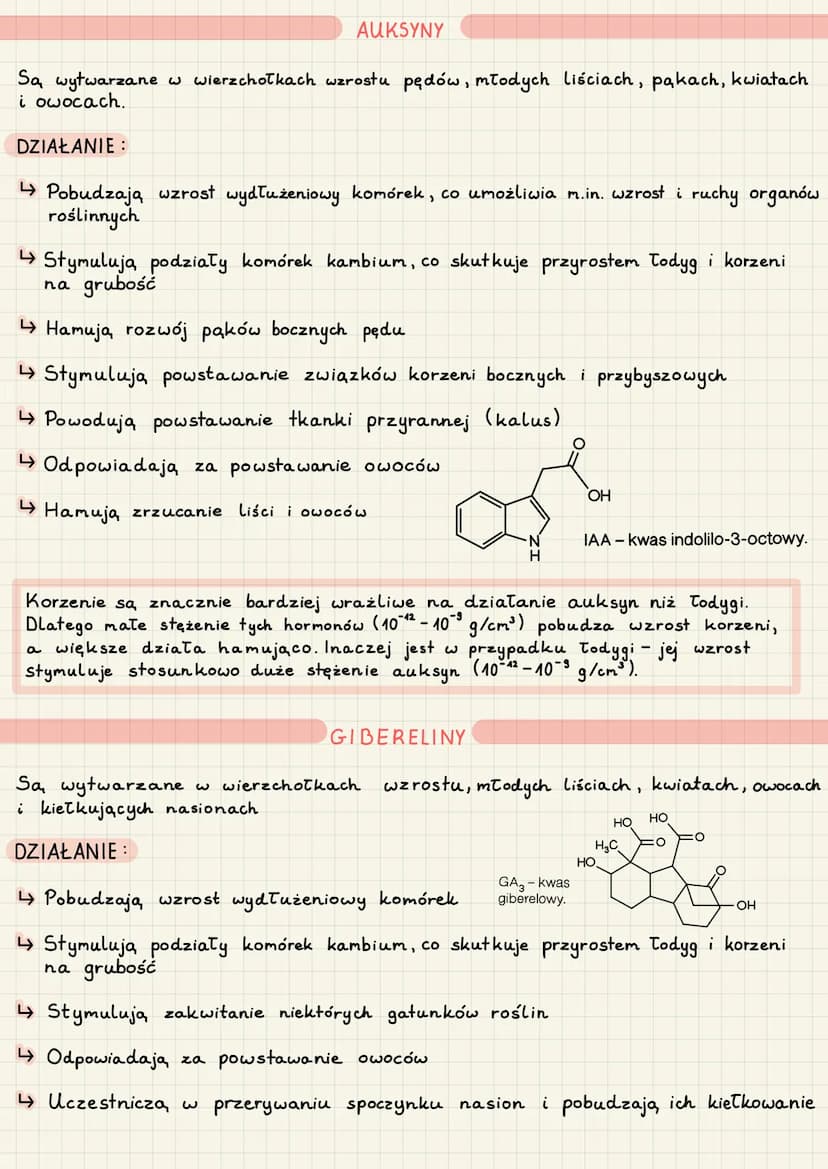 AUKSYNY
Są wytwarzane w wierzchołkach wzrostu pędów, młodych liściach, pąkach, kwiatach
i owocach.
DZIAŁANIE:
↳ Pobudzają wzrost wydłużeniowy komórek, co umożliwia m.in. wzrost i ruchy organów
roślinnych
↳ Stymulują podziały komórek kambium, co skutkuje przyrostem łodyg i korzeni
na grubość
↳ Hamują rozwój pąków bocznych pędu
↳ Stymulują powstawanie związków korzeni bocznych i przybyszowych
↳ Powodują powstawanie tkanki przyrannej (kalus)
↳ Odpowiadają za powstawanie owoców
↳ Hamują zrzucanie liści i owoców
O
OH
N
H
IAA – kwas indolilo-3-octowy.
Korzenie są znacznie bardziej wrażliwe na działanie auksyn niż łodygi.
Dlatego małe stężenie tych hormonów (10⁻¹² - 10⁻⁹ g/cm³) pobudza wzrost korzeni,
a większe działa hamująco. Inaczej jest w przypadku łodygi - jej wzrost
stymuluje stosunkowo duże stężenie auksyn (10⁻¹² - 10⁻⁹ g/cm³).
GIBERELINY
Są wytwarzane w wierzchołkach wzrostu, młodych liściach, kwiatach, owocach
i kiełkujących nasionach
DZIAŁANIE:
HO HO
H₃C O O
HO O
OH
GA₃ – kwas
giberelowy.
↳ Pobudzają wzrost wydłużeniowy komórek
↳ Stymulują podziały komórek kambium, co skutkuje przyrostem łodyg i korzeni
na grubość
↳ Stymulują zakwitanie niektórych gatunków roślin
↳ Odpowiadają za powstawanie owoców
↳ Uczestniczą w przerywaniu spoczynku nasion i pobudzają ich kiełkowanie